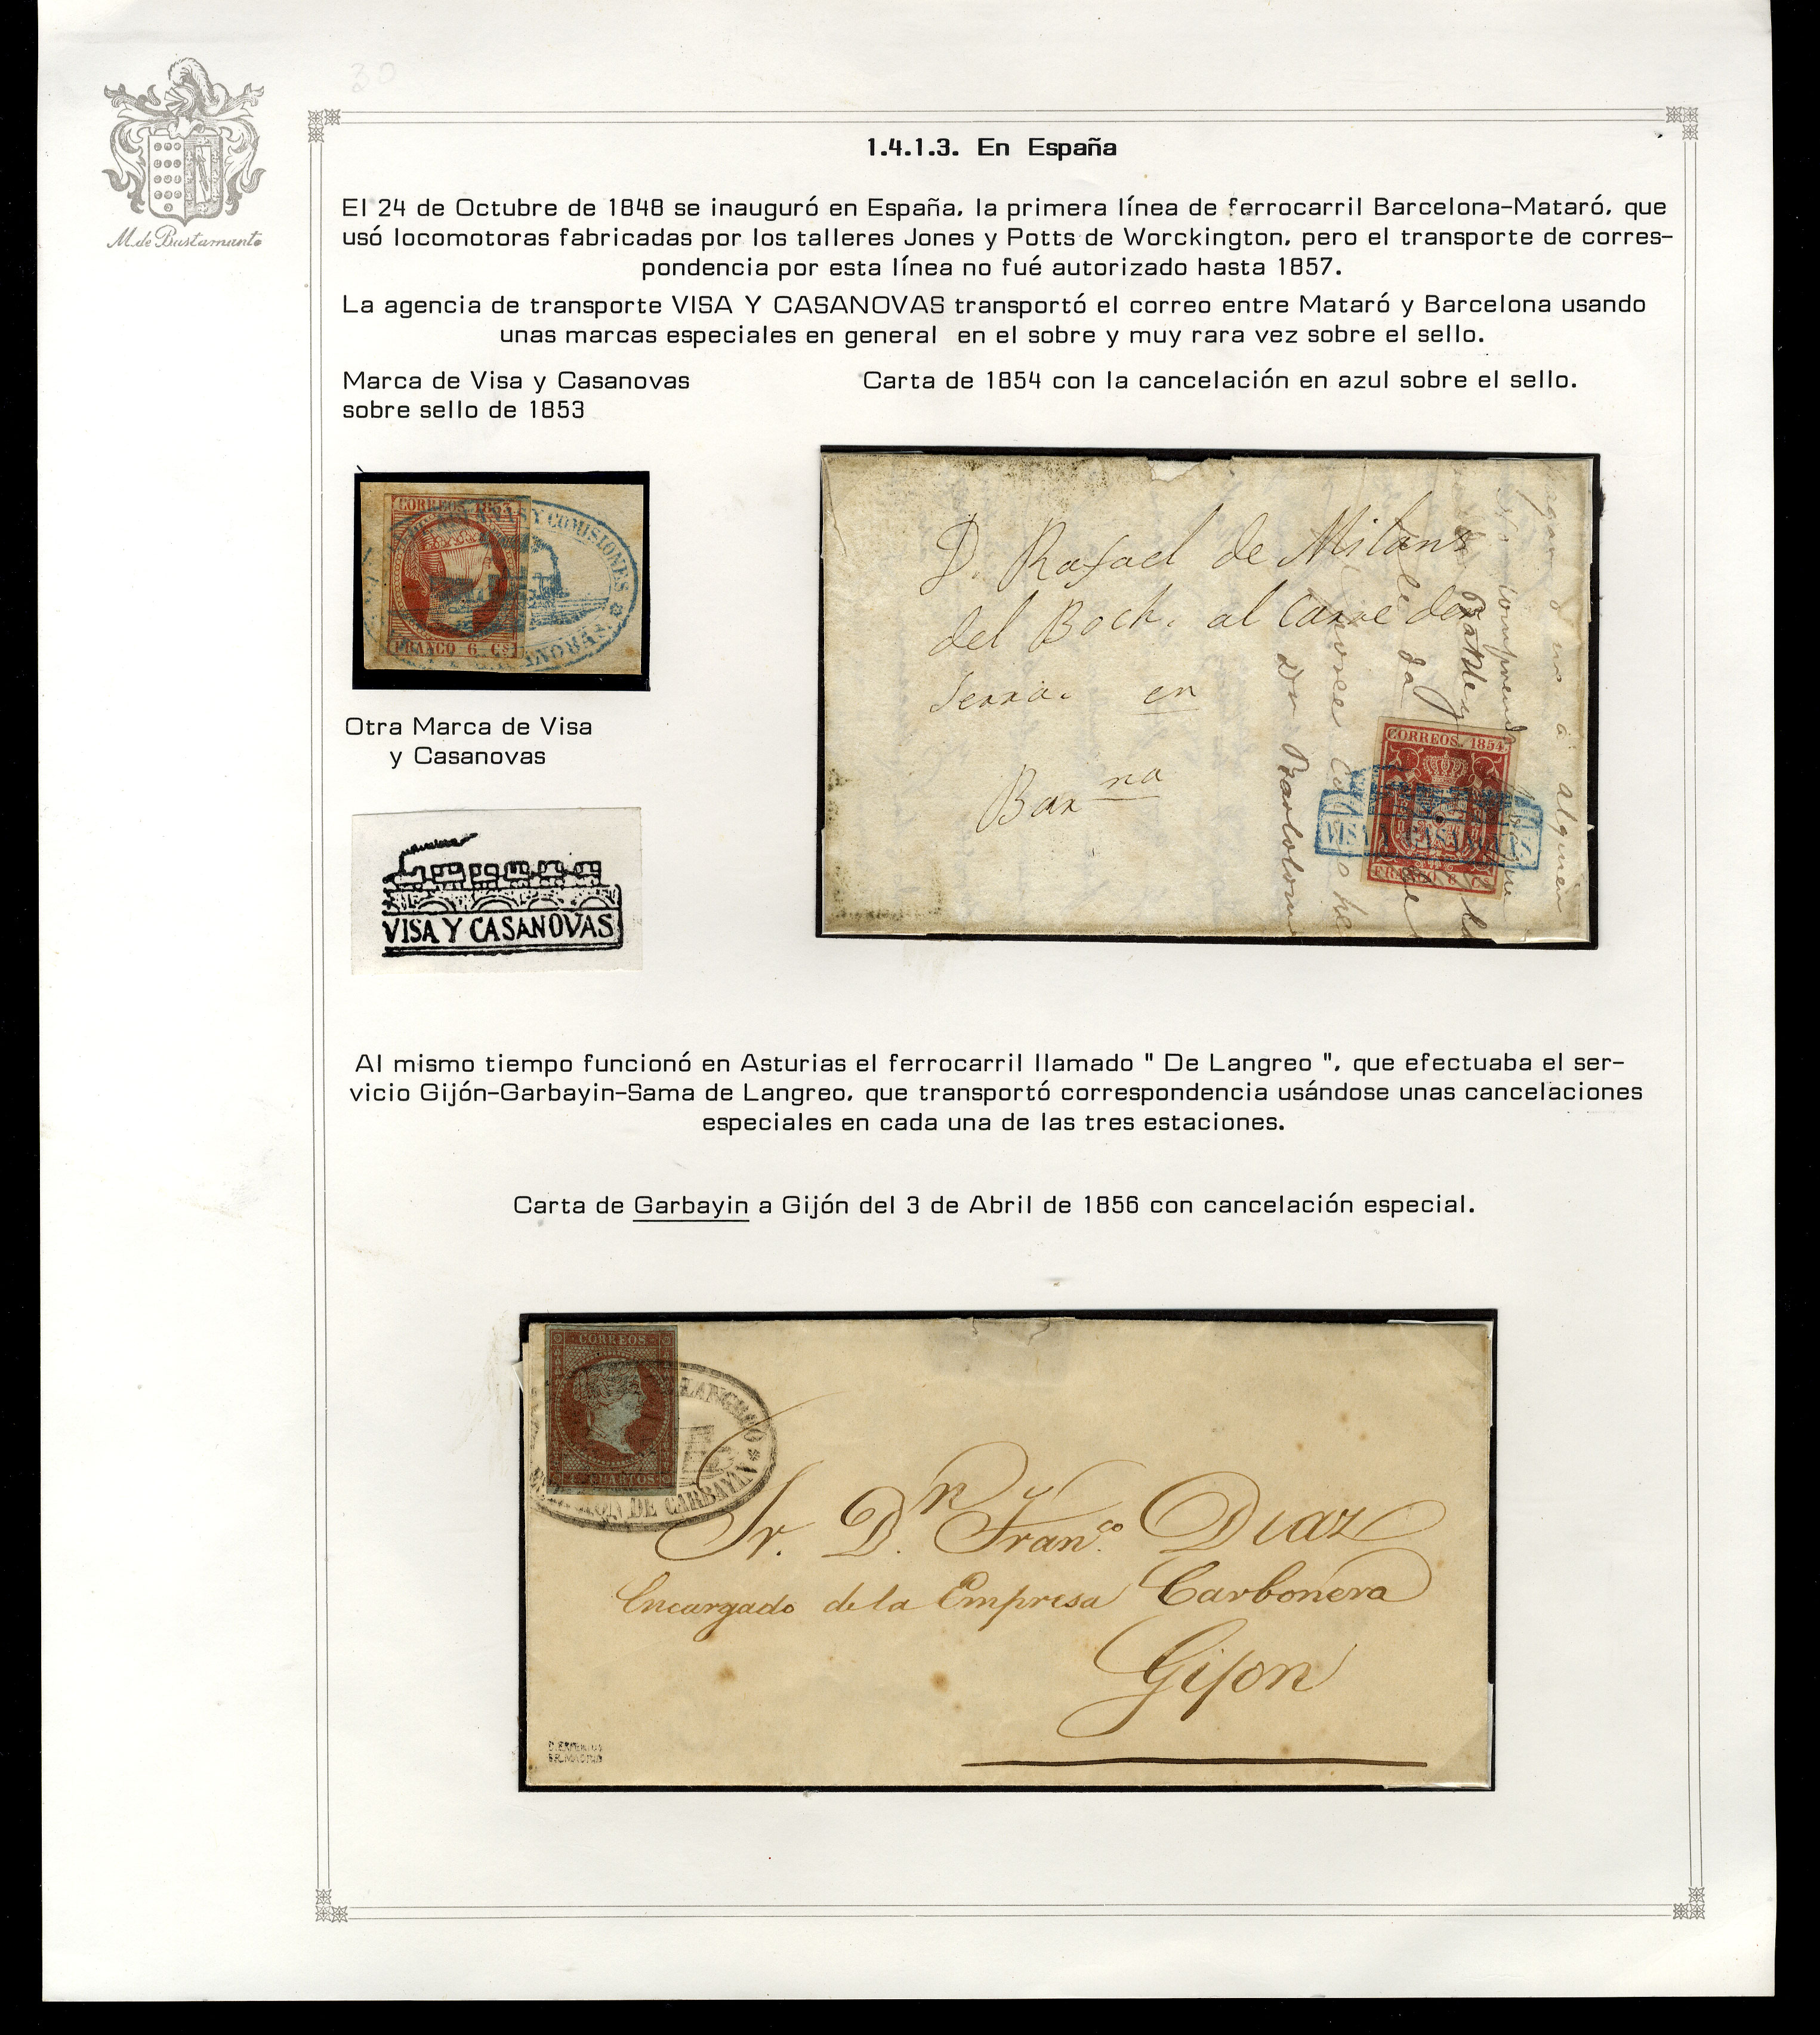 30
M. de Bustamante
1.4.1.3. En España
El 24 de Octubre de 1848 se inauguró en España, la primera línea de ferrocarril Barcelona-Mataró, que
usó locomotoras fabricadas por los talleres Jones y Potts de Worckington, pero el transporte de corres-
pondencia por esta línea no fué autorizado hasta 1857.
La agencia de transporte VISA Y CASANOVAS transportó el correo entre Mataró y Barcelona usando
unas marcas especiales en general en el sobre y muy rara vez sobre el sello.
Marca de Visa y Casanovas
sobre sello de 1853
Carta de 1854 con la cancelación en azul sobre el sello.
CORREOS 1853
Y COMISIONES
FRANCO 6 Cs
D. Rafael de Milans
del Boch, al carre den
Serra. en
Barna
CORREOS. 1854
VISA Y CASANOVAS
FRANCO 6 Cs
Otra Marca de Visa
y Casanovas
VISA Y CASANOVAS
Al mismo tiempo funcionó en Asturias el ferrocarril llamado " De Langreo ", que efectuaba el ser-
vicio Gijón-Garbayin-Sama de Langreo, que transportó correspondencia usándose unas cancelaciones
especiales en cada una de las tres estaciones.
Carta de Garbayin a Gijón del 3 de Abril de 1856 con cancelación especial.
CORREOS
LANGREO
CUARTOS
DE CARBAYIN
Sr. Dn. Franco Diaz
Encargado de la Empresa Carbonera
Gijon